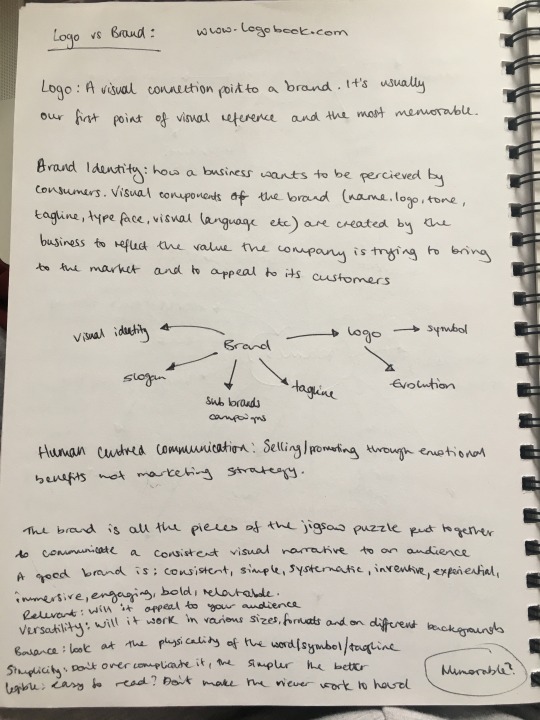 Logo vs Brand: www.logobook.com
Logo: A visual connection point to a brand. It's usually
our first point of visual reference and the most memorable.
Brand Identity: how a business wants to be percieved by
consumers. Visual components of the brand (name, logo, tone,
tagline, type face, visual language etc) are created by the
business to reflect the value the company is trying to bring
to the market and to appeal to its customers
visual identity Brand logo symbol
slogan sub brands campaigns tagline Evolution
Human centred communication: Selling/promoting through emotional
benefits not marketing strategy.
The brand is all the pieces of the jigsaw puzzle put together
to communicate a consistent visual narrative to an audience
A good brand is: consistent, simple, systematic, inventive, experiential,
immersive, engaging, bold, relatable.
Relevant: will it appeal to your audience
Versatility: will it work in various sizes, formats and on different backgrounds
Balance: look at the physicality of the word/symbol/tagline
Simplicity: Don't over complicate it, the simpler the better
legible: easy to read? Don't make the viewer work to hard
Memorable?